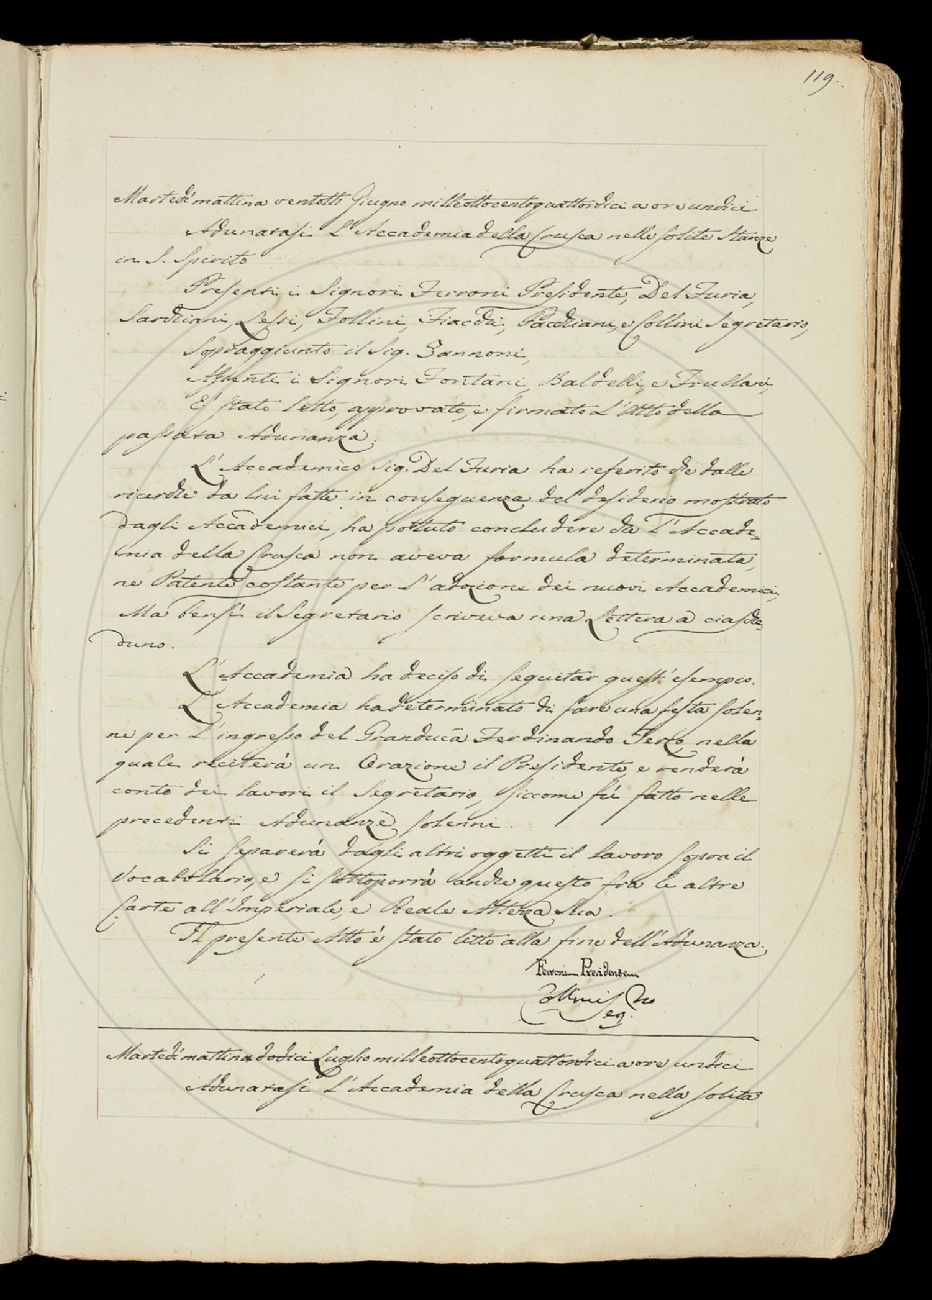 119.
Martedì mattina ventotto Giugno milleottocentoquattordici a ore undici
Adunatasi L'Accademia della Crusca nelle solite Stanze
in S. Spirito
Presenti i Signori Ferroni Presidente, Del Furia,
Sarchiani, Lessi, Follini, Fiacchi, Pacchiani, e Collini Segretario,
Sopraggiunto il Sig. Zannoni,
Assenti i Signori Fontani, Baldelli, e Frullani,
E' stato letto, approvato, e firmato L'Atto della
passata Adunanza.
L'Accademico Sig. Del Furia ha referito che dalle
ricerche da lui fatte in conseguenza del desiderio mostrato
dagli Accademici, ha potuto concludere che L'Accade=
mia della Crusca non aveva formula determinata,
ne Patente costante per L'adozione dei nuovi Accademici,
Ma bensì il Segretario scriveva una Lettera a ciasche=
duno.
L'Accademia ha deciso di seguitar quest'esempio.
L'Accademia ha determinato di fare una festa solen=
ne per L'ingresso del Granduca Ferdinando Terzo, nella
quale reciterà un Orazione il Presidente e renderà
conto dei lavori il Segretario, siccome fù fatto nelle
precedenti Adunanze solenni.
Si separerà dagli altri oggetti il lavoro sopra il
Vocabolario, e si sottoporrà anche questo fra le altre
Carte all'Imperiale, e Reale Altezza Sua.
Il presente Atto è stato letto alla fine dell'Adunanza.
Ferroni Presidente
Collini Seg.rio
Martedì mattina dodici Luglio milleottocentoquattordici a ore undici
Adunatasi L'Accademia della Crusca nella solita